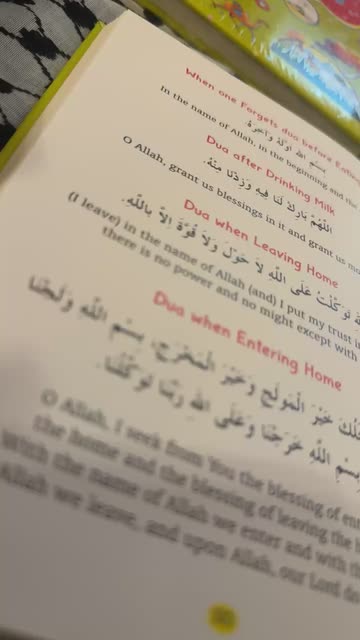 When one Forgets dua before Eating
بِسْمِ اللهِ اَوَّلَهُ وَآخِرَهُ.
In the name of Allah, in the beginning and the
Dua after Drinking Milk
اَللّٰهُمَّ بَارِكْ لَنَا فِيهِ وَزِدْنَا مِنْهُ.
O Allah, grant us blessings in it and grant us mo
Dua when Leaving Home
تَوَكَّلْتُ عَلَى اللهِ لَا حَوْلَ وَلَا قُوَّةَ اِلَّا بِاللهِ.
(I leave) in the name of Allah (and) I put my trust i
there is no power and no might except with
Dua when Entering Home
خَيْرَ الْمَوْلَجِ وَخَيْرَ الْمَخْرَجِ، بِسْمِ اللهِ وَلَجْنَا
بِسْمِ اللهِ خَرَجْنَا وَعَلَى اللهِ رَبِّنَا تَوَكَّلْنَا.
O Allah, I seek from You the blessing of ent
the home and the blessing of leaving the h
With the name of Allah we enter and with th
Allah we leave, and upon Allah, our Lord do